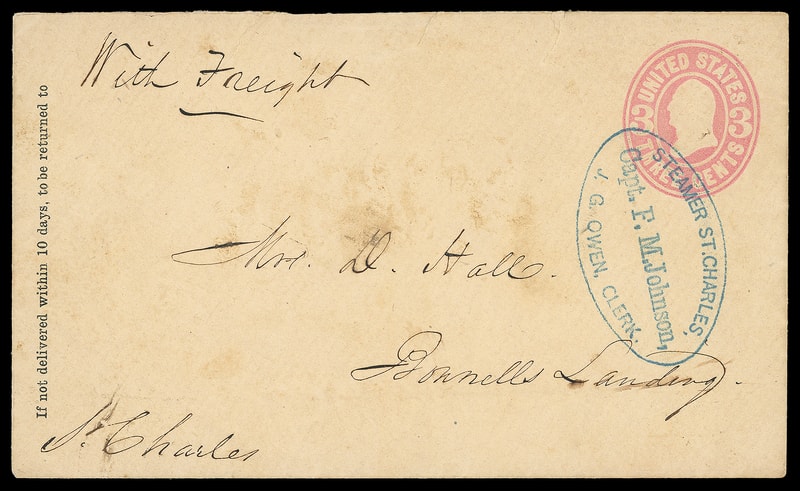 With Freight
If not delivered within 10 days, to be returned to
UNITED STATES
3 3
THREE CENTS
STEAMER ST. CHARLES,
Capt. F. M. Johnson,
J. G. QWEN, CLERK.
Mrs. D. Hall.
Bonnells Landing.
St. Charles